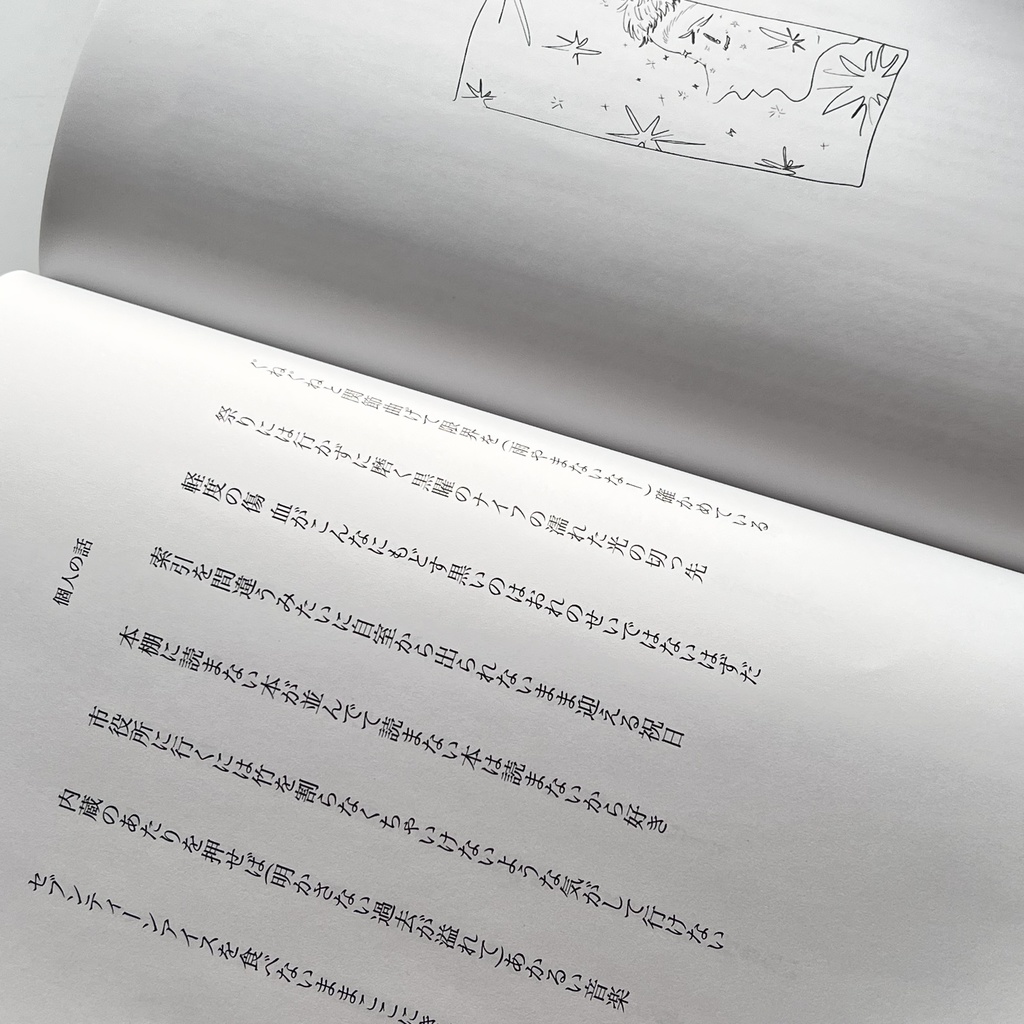 個人の話
ぐねぐねと関節曲げて限界を(雨やまないなー)確かめている
祭りには行かずに磨く黒曜のナイフの濡れた光の切っ先
軽度の傷 血がこんなにもどす黒いのはおれのせいではないはずだ
索引を間違うみたいに自室から出られないまま迎える祝日
本棚に読まない本が並んでて読まない本は読まないから好き
市役所に行くには竹を割らなくちゃいけないような気がして行けない
内蔵のあたりを押せば(明かさない過去が溢れて)あかるい音楽
セブンティーンアイスを食べないままここに